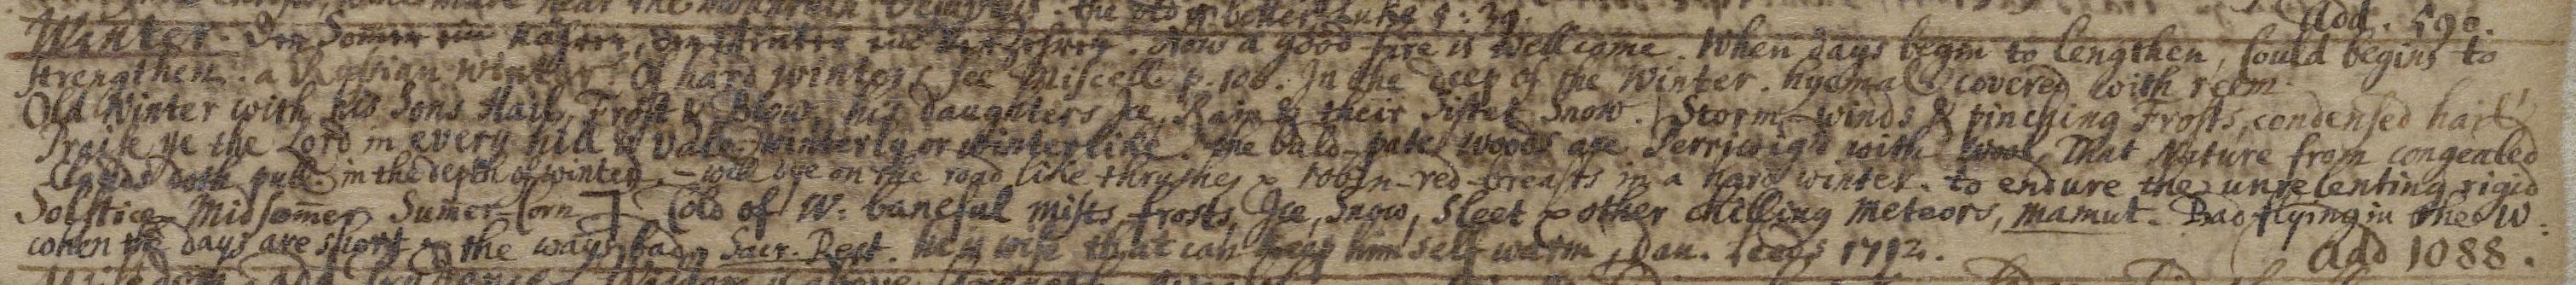 the old is better. Luke 5: 39.
Add. 590.
Winter. Den Somer ein Käfere, den Winter ein . Now a good fire is wellcome. When days begin to lengthen, could begins to
strengthen. a Russian winter. Of hard winters see Miscell. p. 106. In the deep of the Winter. hyemal covered with reem.
Old Winter with his Sons Hail, Frost & Blow, his daughters Ice, Rain & their Sister Snow. Storm-winds & pinching Frosts, condensed hail
Praise ye the Lord in every hill & vale. winterly or winterlike. the bald-pate woods are Perriwig'd with wool, That Nature from congealed
Clouds doth pull. in the depth of winter. – will lye on the road like thrushes & robin-red-breasts in a hard winter. to endure the unrelenting rigid
Solstice. Midsom̄er Sum̄er-Corn ] Cold of W: baneful mists, frosts, Ice, Snow, Sleet & other chilling meteors, mamut. Bad flying in the W:
when the days are short & the ways bad, Sacr. Rest. he is wise that can keep himself warm, Dan. Leeds 1712.
Add 1088.